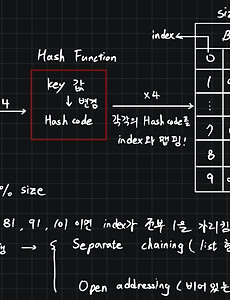 siz
B
index
0
Hash Function
key 값
↓ 변경
Hash code
4
x4
각각의 Hash code를
index와 맵핑!
1
⋮
7
8
9
% size
81, 91, 101 이면 index가 전부 1을 가리킴
→ Separate chaining ( list 형
Open addressing ( 비어있는